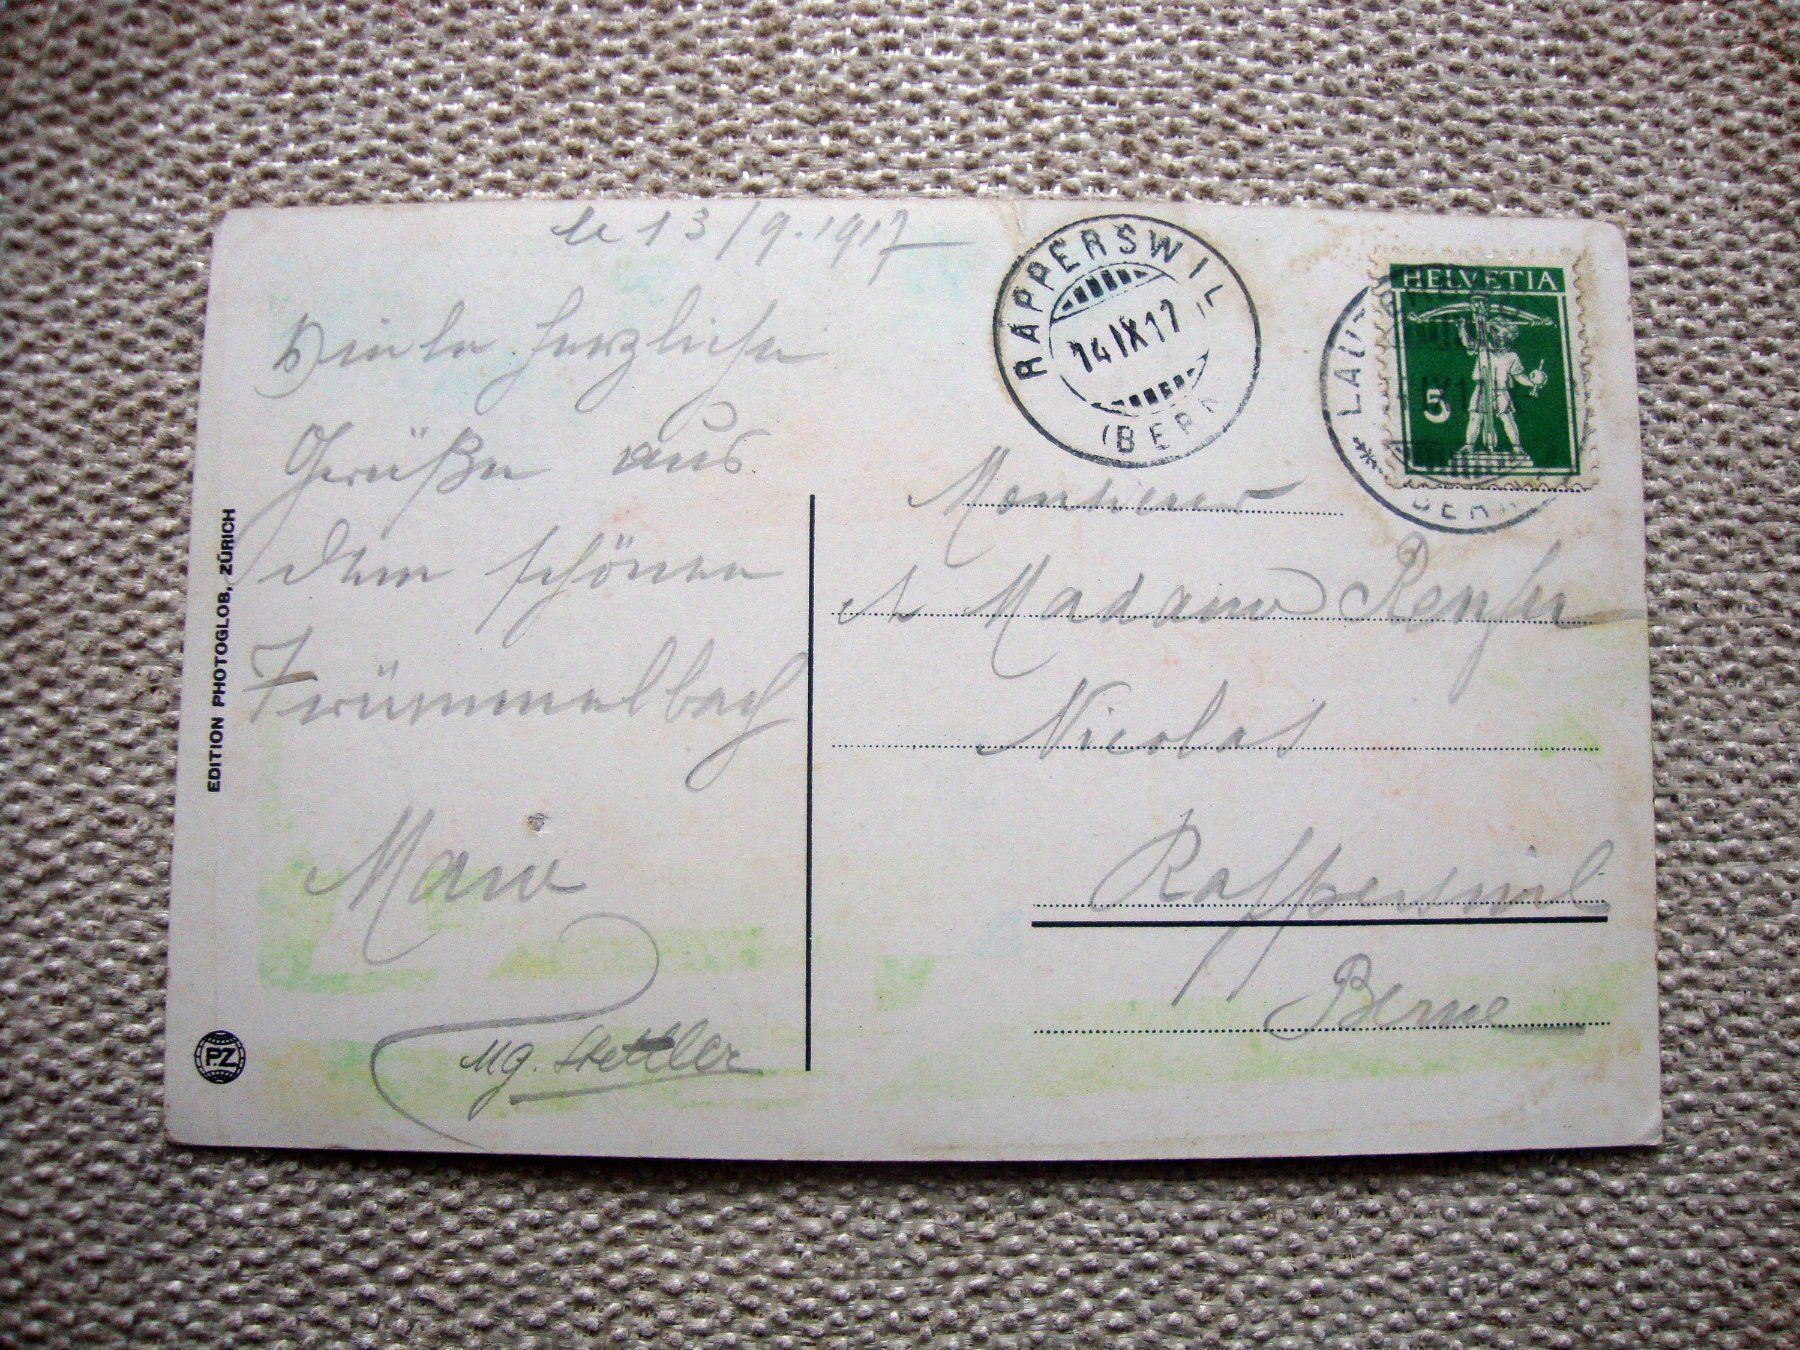 le 13/9.1917
Viele herzliche
Grüße aus
dem schönen
Trümmelbach
Marie
Mg. Stettler
EDITION PHOTOGLOB, ZÜRICH
P.Z
RAPPERSWIL
14 IX 17
(BERN
HELVETIA
5
LAUT
BERN
Monsieur
et Madame Renfer
Nicolas
Rapperswil
Berne